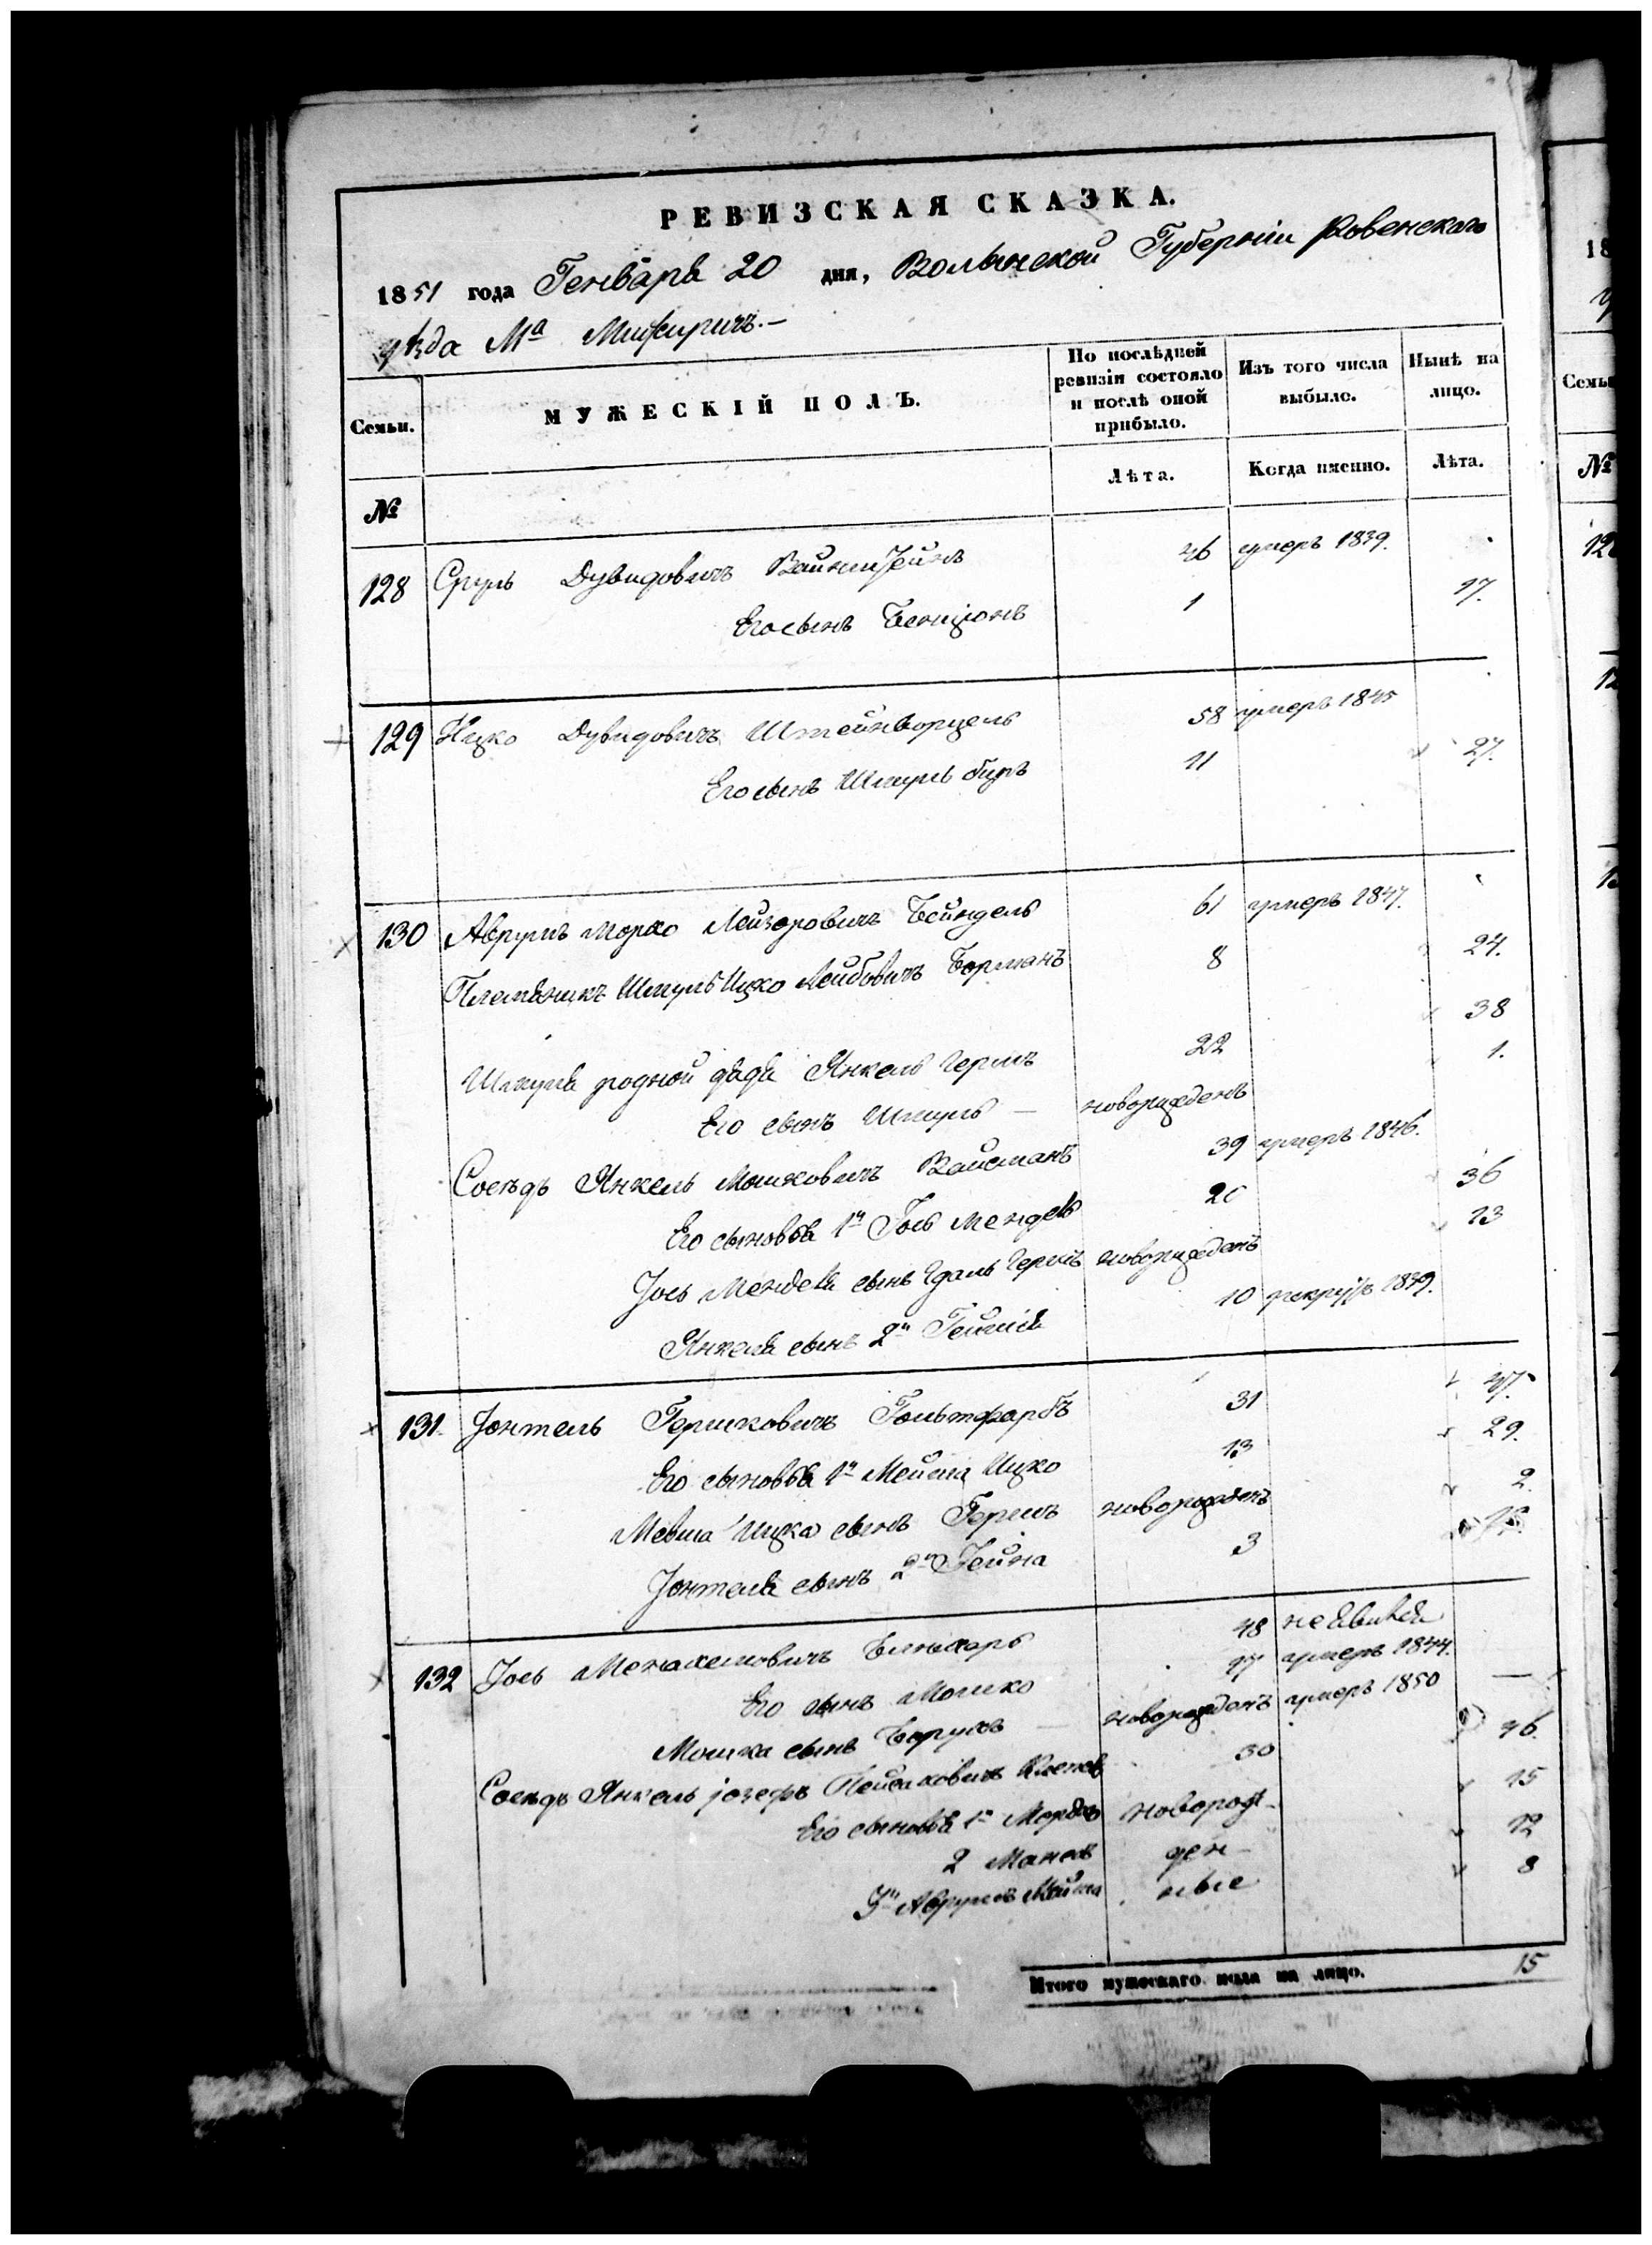 РЕВИЗСКАЯ СКАЗКА.
1851 года Генваря 20 дня, Волынской Губерніи Ровенскаго
уѣзда Мª Мижиричъ.—
Семьи. МУЖЕСКІЙ ПОЛЪ. По послѣдней ревизіи состояло и послѣ оной прибыло. Изъ того числа выбыло. Нынѣ на лицо.
№ Лѣта. Когда именно. Лѣта.
128 Сруль Дувидовичъ Вайнштейнъ 46 умеръ 1839.
Его сынъ Бенционъ 1 17.
129 Ицко Дувидовичъ Штейнворцель 58 умеръ 1845
Его сынъ Шмуль 11 27.
130 Аврумъ Морко Лейзоровичъ Бейндель 61 умеръ 1847.
Племянникъ Шмуль Ицко Лейбовичъ Берманъ 8 24.
Шмуля родной дядя Янкель Гершъ 22 38
Его сынъ Шмуль — новорожденъ 1.
Сосѣдъ Янкель Мошковичъ Вайсманъ 39 умеръ 1846.
Его сыновья 1й Іось Мендель 20 36
Іось Менделя сынъ Гершъ новорожденъ 13
Янкеля сынъ 2й 10 рекрутъ 1839.
131 Іонтель Гершковичъ Гольтфарбъ 31 47.
Его сыновья 1й Мейша Ицко 13 29.
Мевша Ицка сынъ Гершъ новорожденъ 2.
Іонтеля сынъ 2й 3
132 Іось Менахемовичъ 48 неявился
Его сынъ Мошко 17 умеръ 1844.
Мошка сынъ Борухъ — новорожденъ умеръ 1850 —
Сосѣдъ Янкель Іозефъ Пейсаховичъ 30 46.
Его сыновья 1й Мордко новорож- 15
2 Манесъ ден- 12
3й Аврумъ Мейша ные 8
Итого мужескаго пола на лицо. 15
18
№